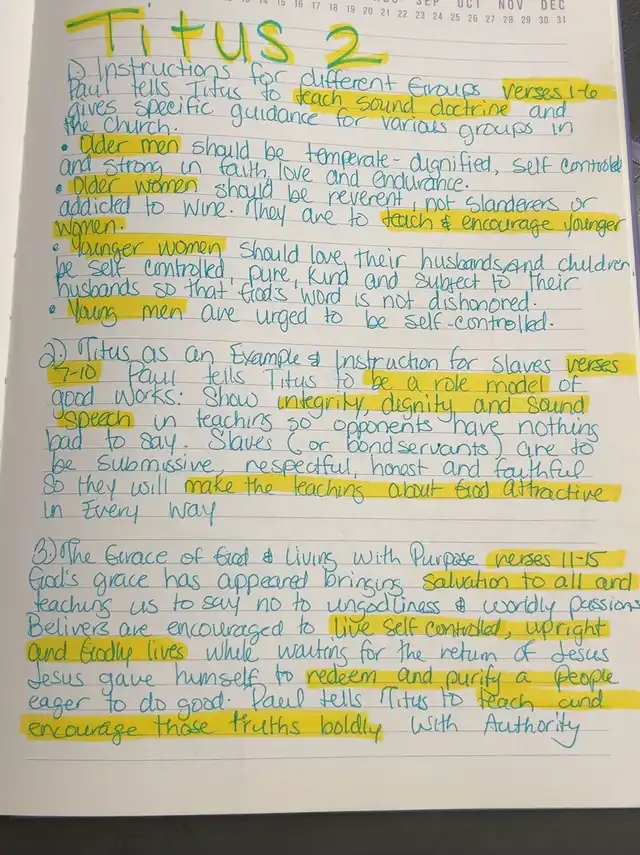 14 15 16 17 18 19 20 21 22 23 24 25 26 27 28 29 30 31
SEP OCT NOV DEC
Titus 2
1) Instructions for different Groups verses 1-6
Paul tells Titus to teach sound doctrine and
gives specific guidance for various groups in
the church.
• Older men should be temperate - dignified, self controlled
and strong in faith, love and endurance.
• Older women should be reverent, not slanderers or
addicted to wine. They are to teach & encourage younger
women.
• Younger women should love their husbands and children,
be self controlled, pure, kind and subject to their
husbands so that God's word is not dishonored.
• Young men are urged to be self-controlled.
2) Titus as an Example & Instruction for Slaves verses
7-10 Paul tells Titus to be a role model of
good works. Show integrity, dignity and sound
speech in teaching so opponents have nothing
bad to say. Slaves (or bondservants) are to
be submissive, respectful, honest and faithful
so they will make the teaching about God attractive
in Every way
3) The Grace of God & Living with Purpose verses 11-15
God's grace has appeared bringing salvation to all and
teaching us to say no to ungodliness & worldly passions
Belivers are encouraged to live self controlled, upright
and Godly lives while waiting for the return of Jesus
Jesus gave himself to redeem and purify a people
eager to do good. Paul tells Titus to teach and
encourage those truths boldly with Authority